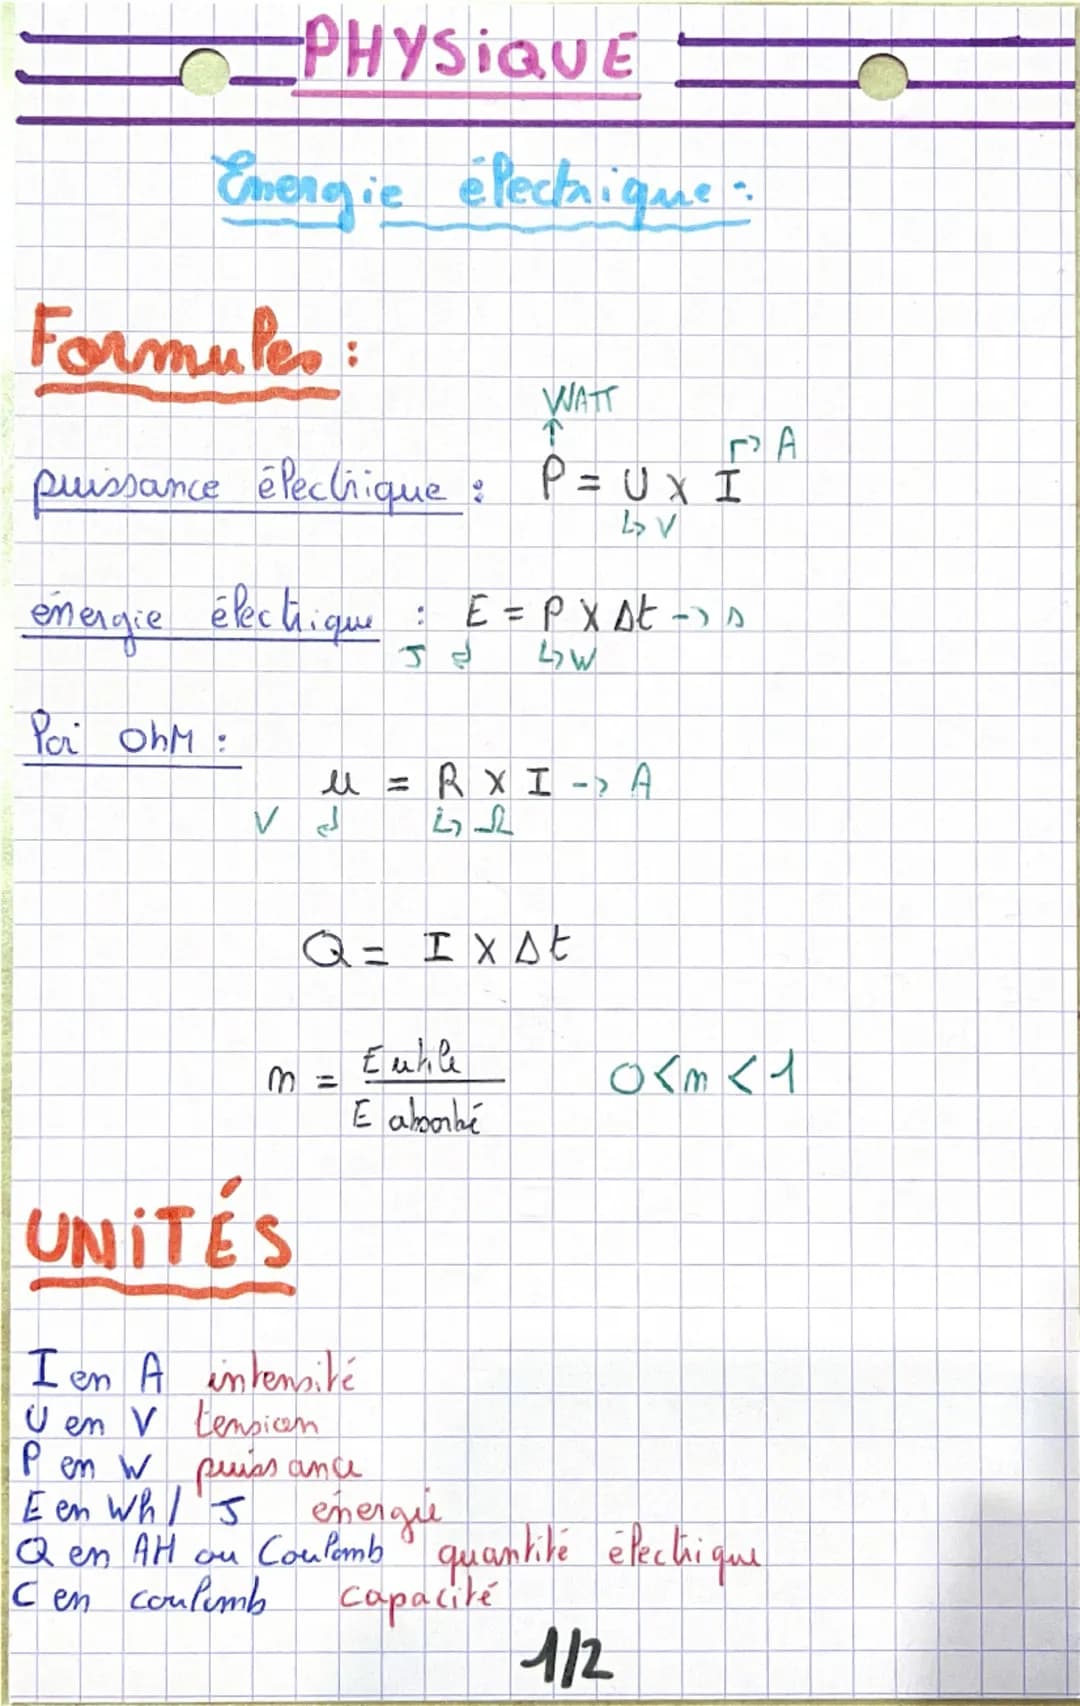 PHYSiQUE
Energie électrique :
Formules :
WATT
↑
puissance électrique : P = U x I ↱ A
↳ V
énergie électrique : E = P X Δt -> s
J ↲ ↳ W
Loi OhM :
u = R X I -> A
V ↲ ↳ Ω
Q = I X Δt
n = E utile / E absorbé 0 < n < 1
UNiTÉS
I en A intensité
U en V tension
P en W puissance
E en Wh / J énergie
Q en AH ou Coulomb quantité électrique
C en coulomb capacité
1/2